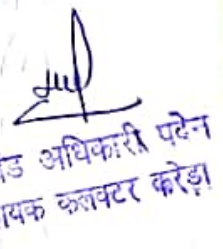 ड अधिकारी पदेन
ायक कलक्टर करेड़ा